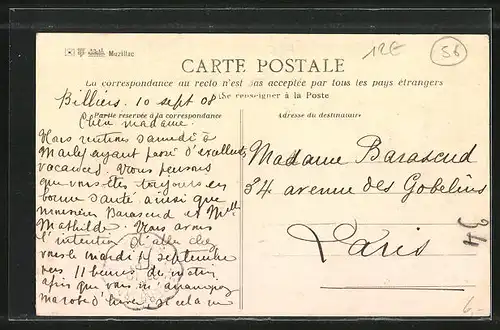 Muzillac
12E
56
CARTE POSTALE
La correspondance au recto n'est pas acceptée par tous les pays étrangers
(Se renseigner à la Poste
Billiers. 10 sept 08
Partie réservée à la correspondance
Adresse du destinataire
madame.
Nous rentrons samedi à
Marly ayant passé d'excellentes
vacances. Nous pensons
que vous êtes toujours en
bonne santé ainsi que
monsieur Barascud et Melle
Mathilde. Nous avons
l'intention d'aller chez
vous le mardi septembre
vers 11 heures du matin
afin que vous m'
ma robe d'hiver si cela ne
Madame Barascud
34 avenue des Gobelins
Paris
34
6.-